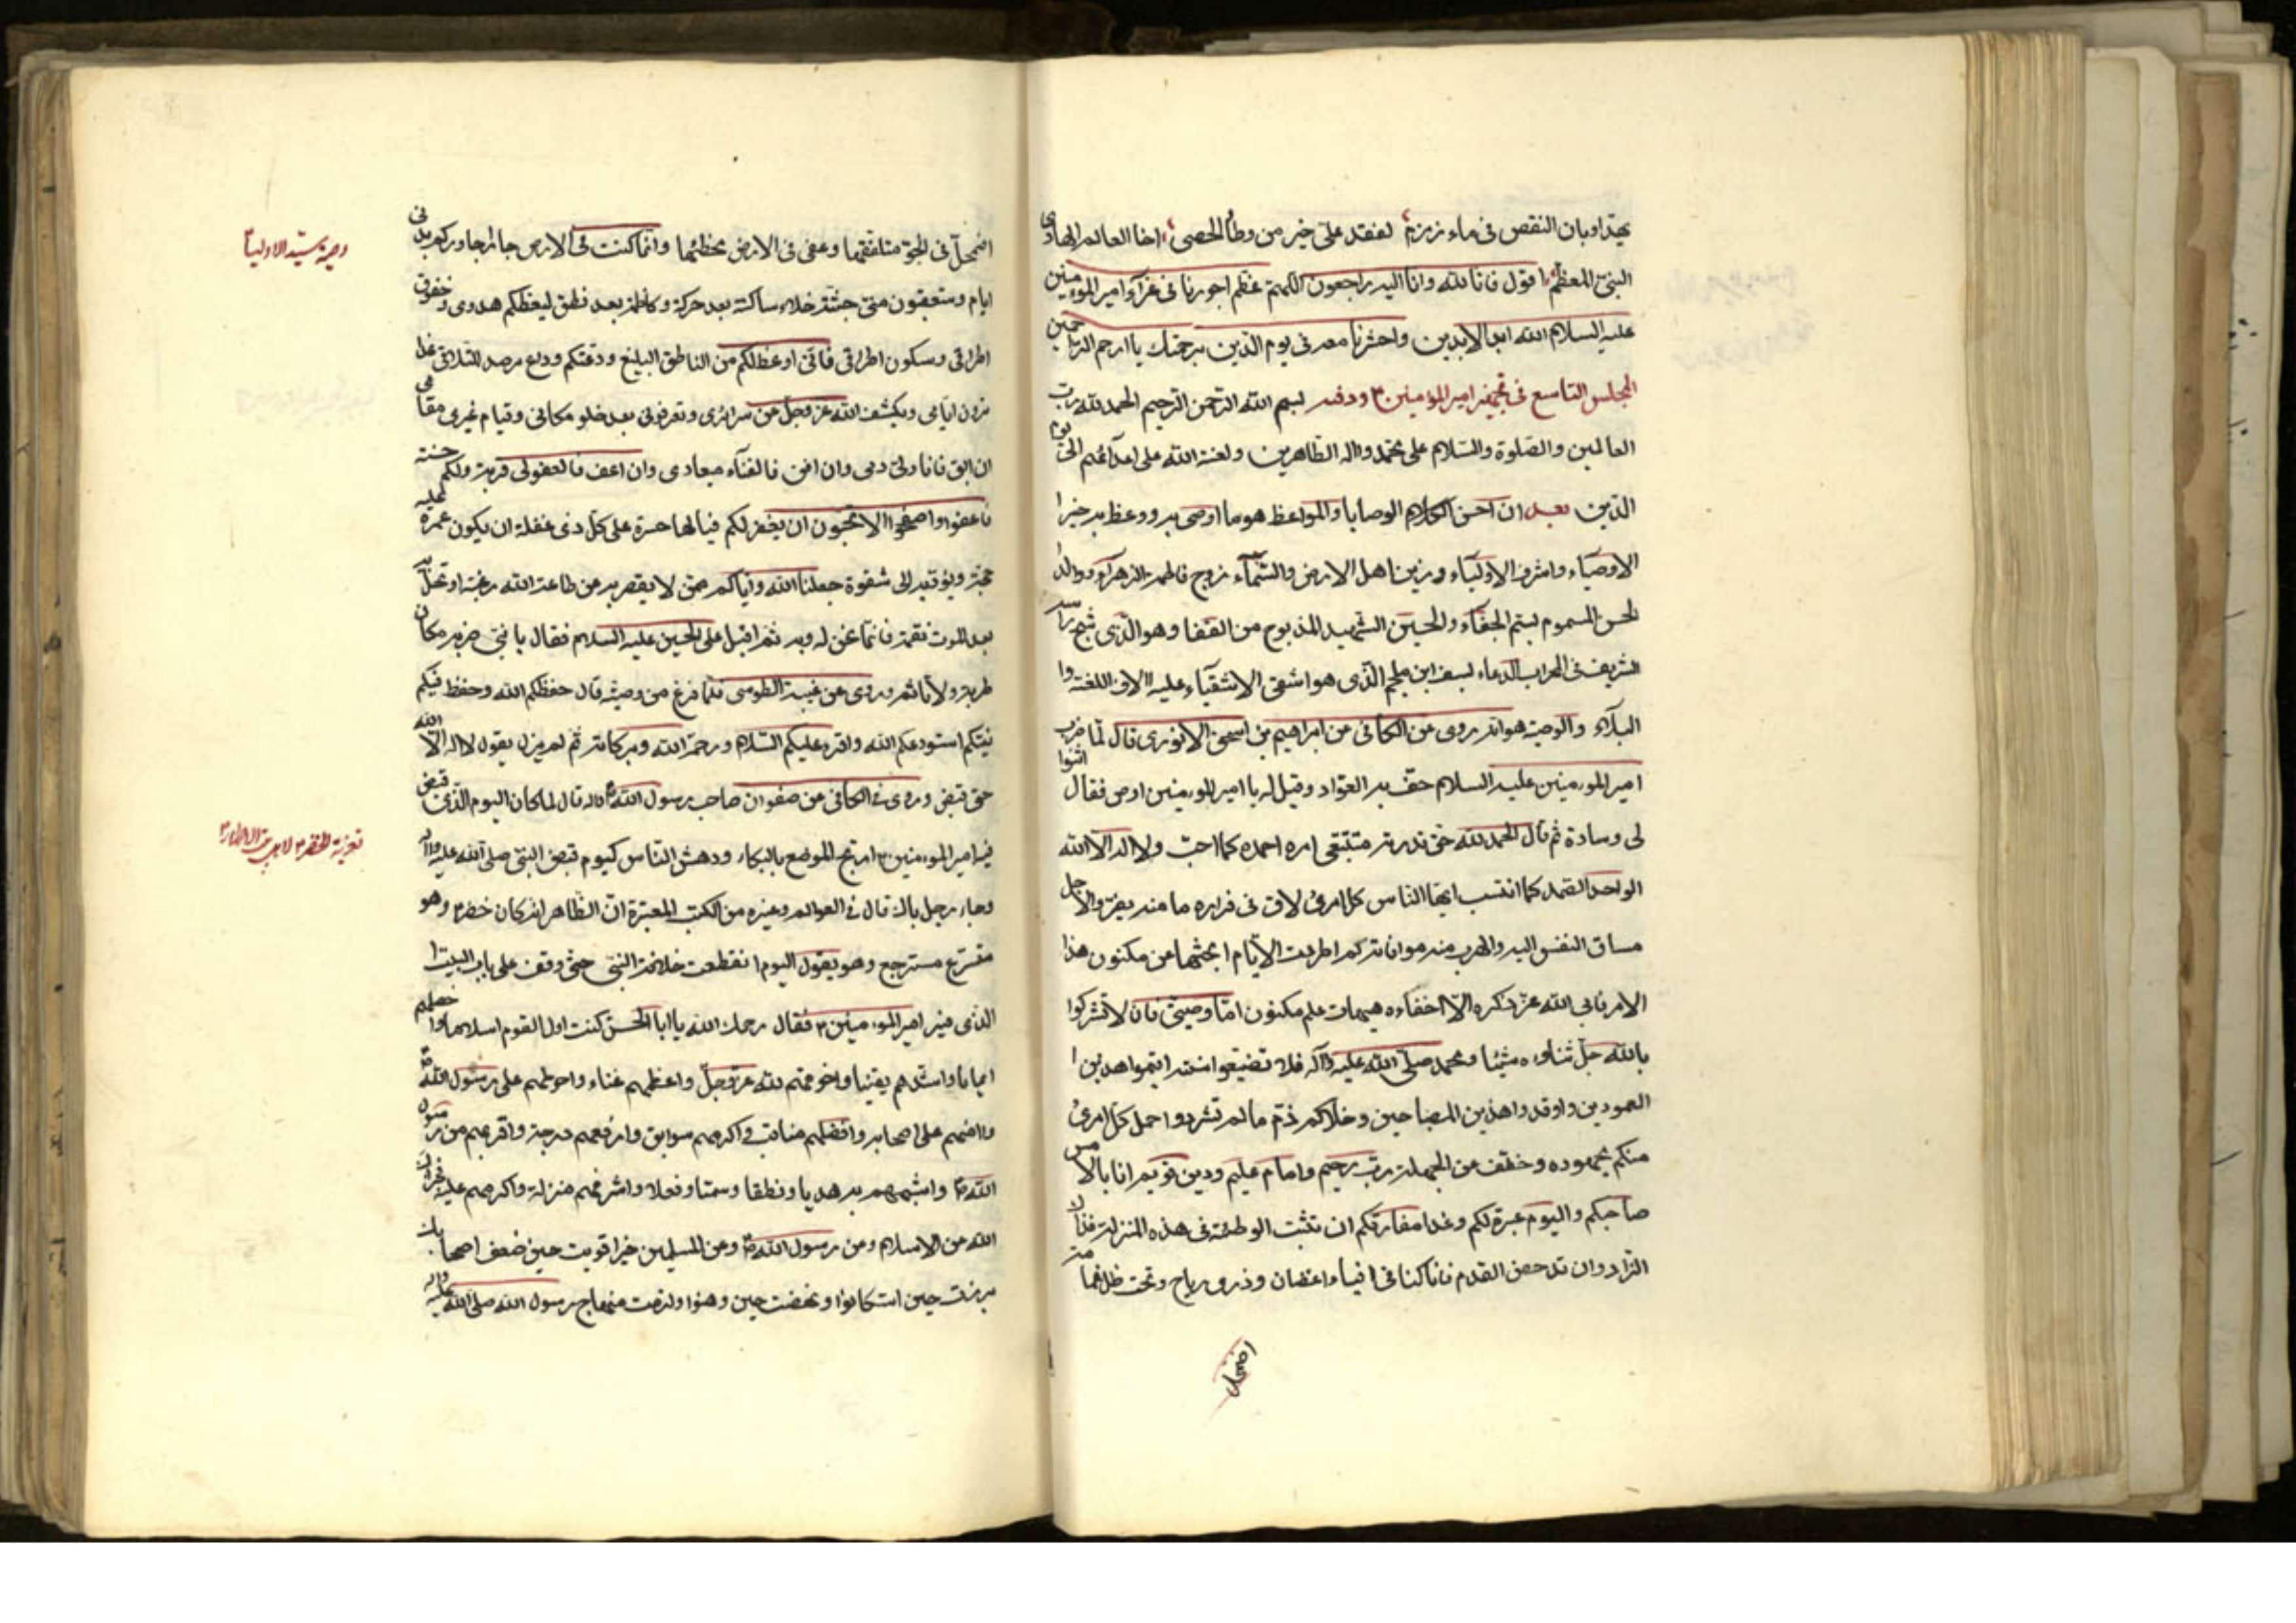 بهتداو بان النقص فى ماء زمزم لفقد علىّ خير من وطأ الحصى اخا العالم الهادى
النبىّ المعظم اقول فانا لله وانا اليه راجعون اللهمّ عظم اجورنا فى عزآء امير المؤمنين
عليه السلام الله ابد الابدين واحشرنا معه فى يوم الدّين برحمتك يا ارحم الراحمين
المجلس التاسع فى تجهيز امير المؤمنين ۴ ودفنه بسم الله الرّحمن الرّحيم الحمد لله ربّ
العالمين والصّلوة والسّلام على محمّد واله الطّاهرين ولعنة الله على اعدآئهم الى يوم
الدّين بعد ان احسن الكلام الوصايا والمواعظ هو ما اوصى به ووعظ به خير
الاوصيآء واشرف الاوليآء وزين اهل الارض والسّمآء زوج فاطمة الزهرآء ووالد
الحسن المسموم بسمّ الجفآء والحسين الشّهيد المذبوح من القفا وهو الّذى شج راسه
الشريف فى المحراب الدعاء بسيف ابن ملجم الّذى هو اشقى الاشقيآء عليه الاف اللعنة وا
البلآء والوصيّة هو انه روى عن الكافى عن ابراهيم بن اسحق الاخورى قال لمّا ضرب
امير المؤمنين عليه السلام حفّ به العوّاد وقيل له يا امير المؤمنين اوص فقال اثنوا
لى وسادة ثم قال الحمد لله حقّ قدره متّبعى امره احمده كما احبّ ولا اله الا الله
الواحد الصّمد كما انتسب ايّها النّاس كل امرئ لاق فى فراره ما منه يفرّ والاجل
مساق النفس اليه والهرب منه موافاته كم اطردت الايّام ابحثها عن مكنون هذا
الامر فابى الله عزّ ذكره الّا اخفاءه هيهات علم مكنون امّا وصيّتى فان لا تشركوا
بالله جلّ ثناؤه شيئا ومحمد صلّى الله عليه واله فلا تضيّعوا سنّته اقيموا هذين ا
العمودين واوقدوا هذين المصباحين وخلاكم ذمّ ما لم تشردوا احمل كل امرئ
منكم مجهوده وخفّف عن الجهلة ربّ رحيم وامام عليم ودين قويم انا بالامس
صاحبكم واليوم عبرة لكم وغدا مفارقكم ان تثبت الوطئة فى هذه المنزلة فذاك
المراد وان تدحض القدم فانا كنا فى افياء اغصان وذرى رياح وتحت ظل غمامة
اضمحل
اضمحلّ فى الجوّ متلفقها وعفى فى الارض مخطّها وانّما كنت فى الارض جارا جاوركم بدنى
ايام وستعقبون منّى جثّة خلاء ساكنة بعد حركة وكاظمة بعد نطق ليعظكم هدوى وخفوت
اطراقى وسكون اطرافى فانّه اوعظ لكم من الناطق البليغ ودّعتكم وداع مرصد للتّلاقى غدا
ترون ايّامى ويكشف الله عزّ وجلّ عن سرائرى وتعرفونى بعد خلو مكانى وقيام غيرى مقامى
ان ابق فانا ولىّ دمى وان افن فالفنآء ميعادى وان اعف فالعفو لى قربة ولكم حسنة
فاعفوا واصفحوا الا تحبّون ان يغفر لكم فيالها حسرة على كلّ ذى غفلة ان يكون عمره عليه
حجّة ويؤديه الى شقوة جعلنا الله واياكم ممّن لا يقصر به عن طاعة الله رغبة او تحلّ به
بعد الموت نقمة فانّما نحن له وبه ثم اقبل على الحسين عليه السلام فقال يا بنىّ ضربة مكان
ضربة ولا تاثم وروى عن غيبة الطوسى فلمّا فرغ من وصيّته قال حفظكم الله وحفظ فيكم
نبيّكم استودعكم الله واقرء عليكم السّلام ورحمة الله وبركاته ثم لم يزل يقول لا اله الّا الله
حتى قبض وروى فى الكافى عن صفوان صاحب رسول الله ص انه قال لما كان اليوم الّذى قبض
فيه امير المؤمنين ۴ ارتجّ الموضع بالبكاء ودهش النّاس كيوم قبض النبىّ صلى الله عليه واله
وجاء رجل باك قال فى العوالم وغيره من الكتب المعتبرة انّ الظّاهر انه كان خضر ۴ وهو
متسرّع مسترجع وهو يقول اليوم انقطعت خلافة النبىّ حتّى وقف على باب البيت ا
الّذى فيه امير المؤمنين ۴ فقال رحمك الله يا ابا الحسن كنت اول القوم اسلاما واخلصهم
ايمانا واشدهم يقينا واخوفهم لله عزّ وجلّ واعظمهم عناء واحوطهم على رسول الله ص
وامنهم على اصحابه وافضلهم مناقب واكرمهم سوابق وارفعهم درجة واقربهم من رسول
الله ص واشبههم به هديا ونطقا وسمتا وفعلا واشرفهم منزلة واكرمهم عليه فجزاك
الله عن الاسلام وعن رسول الله ص وعن المسلمين خيرا قويت حين ضعف اصحابه
برزت حين استكانوا ونهضت حين وهنوا ولزمت منهاج رسول الله صلى الله عليه واله
وصيّة سيّد الاوليا ۴
تعزية الخضر ۴